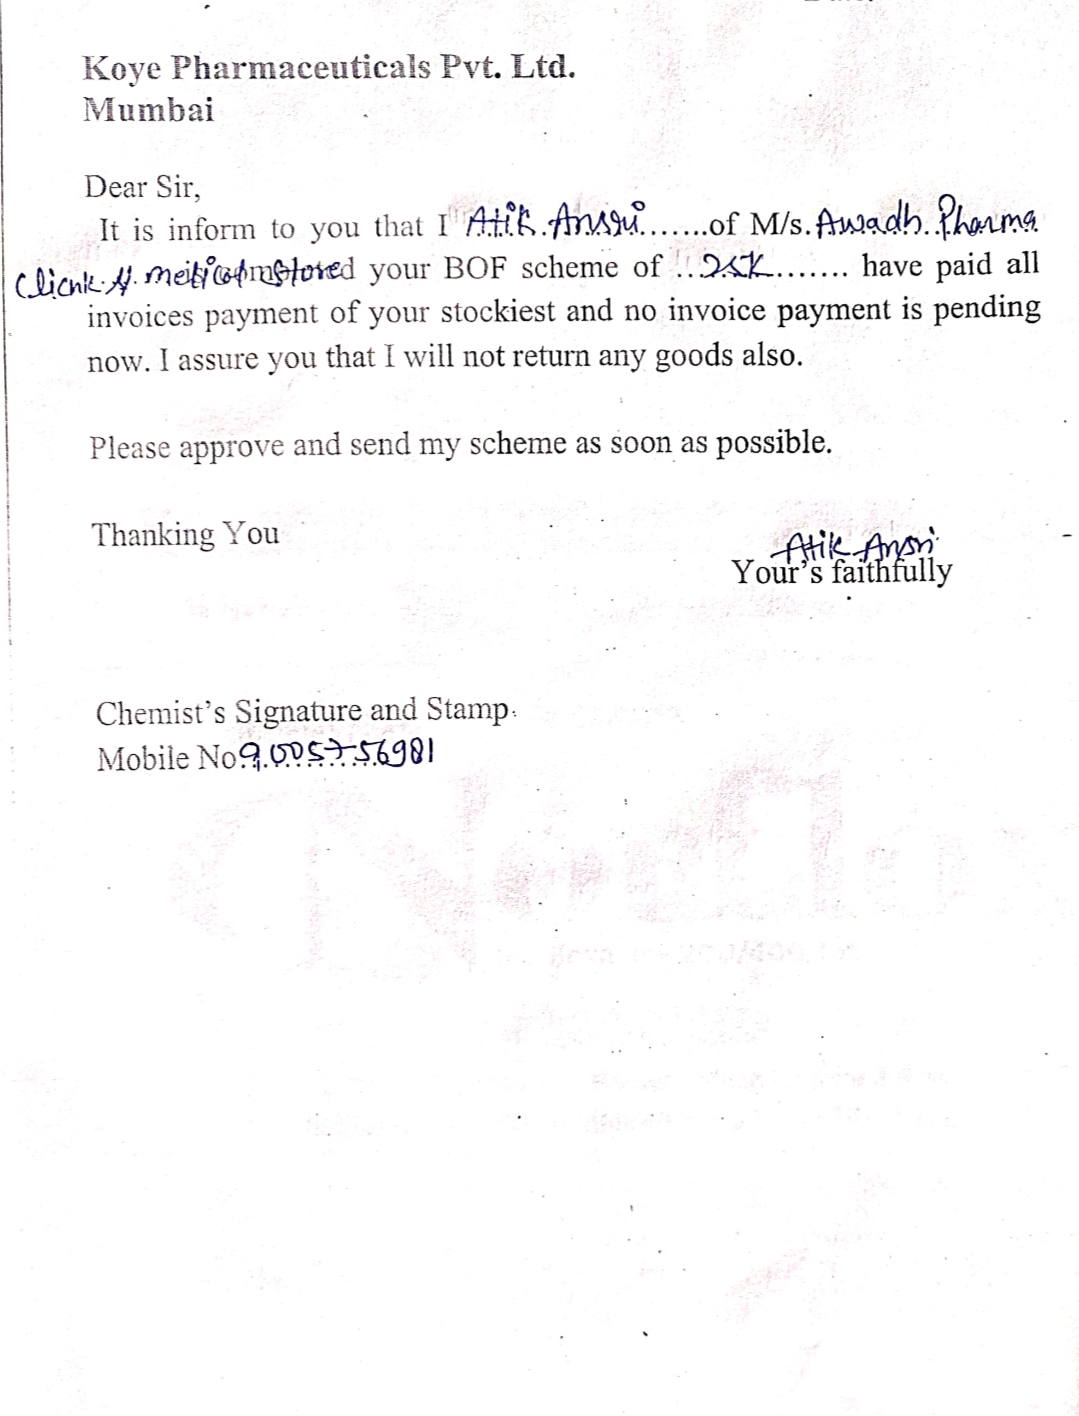 Koye Pharmaceuticals Pvt. Ltd.
Mumbai
Dear Sir,
It is inform to you that I Atik Ansari.......of M/s. Awadh Pharma
your BOF scheme of ..25K....... have paid all
invoices payment of your stockiest and no invoice payment is pending
now. I assure you that I will not return any goods also.
Please approve and send my scheme as soon as possible.
Thanking You
Atik Ansri
Your's faithfully
Chemist's Signature and Stamp.
Mobile No.